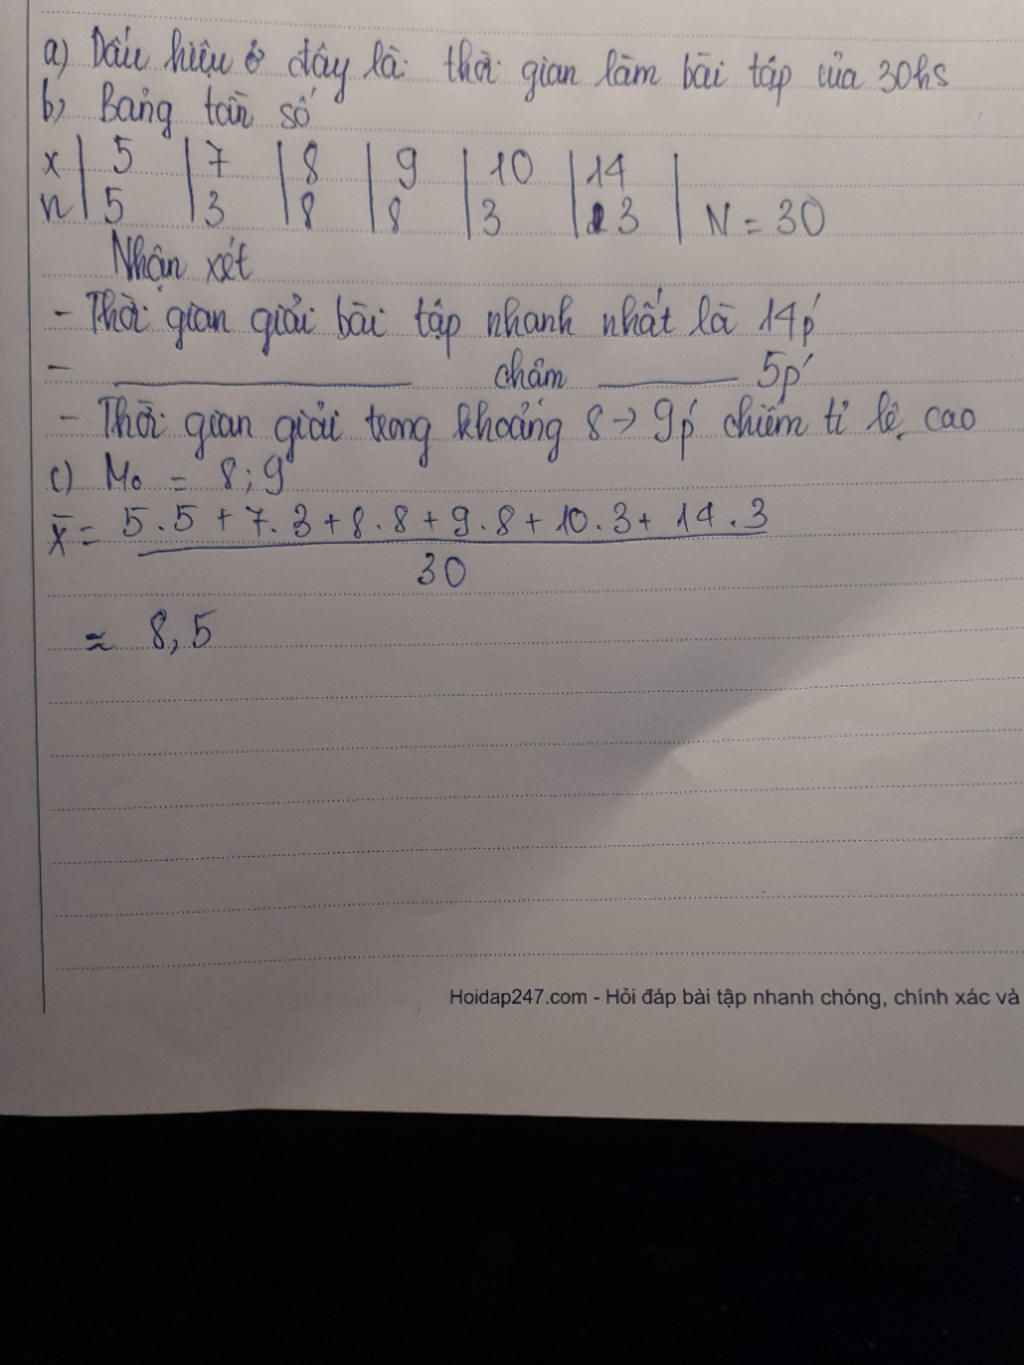 a) Dấu hiệu ở đây là: thời gian làm bài tập của 30hs
b) Bảng tần số
x | 5 | 7 | 8 | 9 | 10 | 14 |
n | 5 | 3 | 8 | 8 | 3 | 3 | N = 30
Nhận xét
- Thời gian giải bài tập nhanh nhất là 14p'
- ________ chậm ________ 5p'
- Thời gian giải trong khoảng 8 → 9p' chiếm tỉ lệ cao
c) Mo = 8 ; 9
x̄ = 5.5 + 7.3 + 8.8 + 9.8 + 10.3 + 14.3
30
≈ 8,5
Hoidap247.com - Hỏi đáp bài tập nhanh chóng, chính xác và